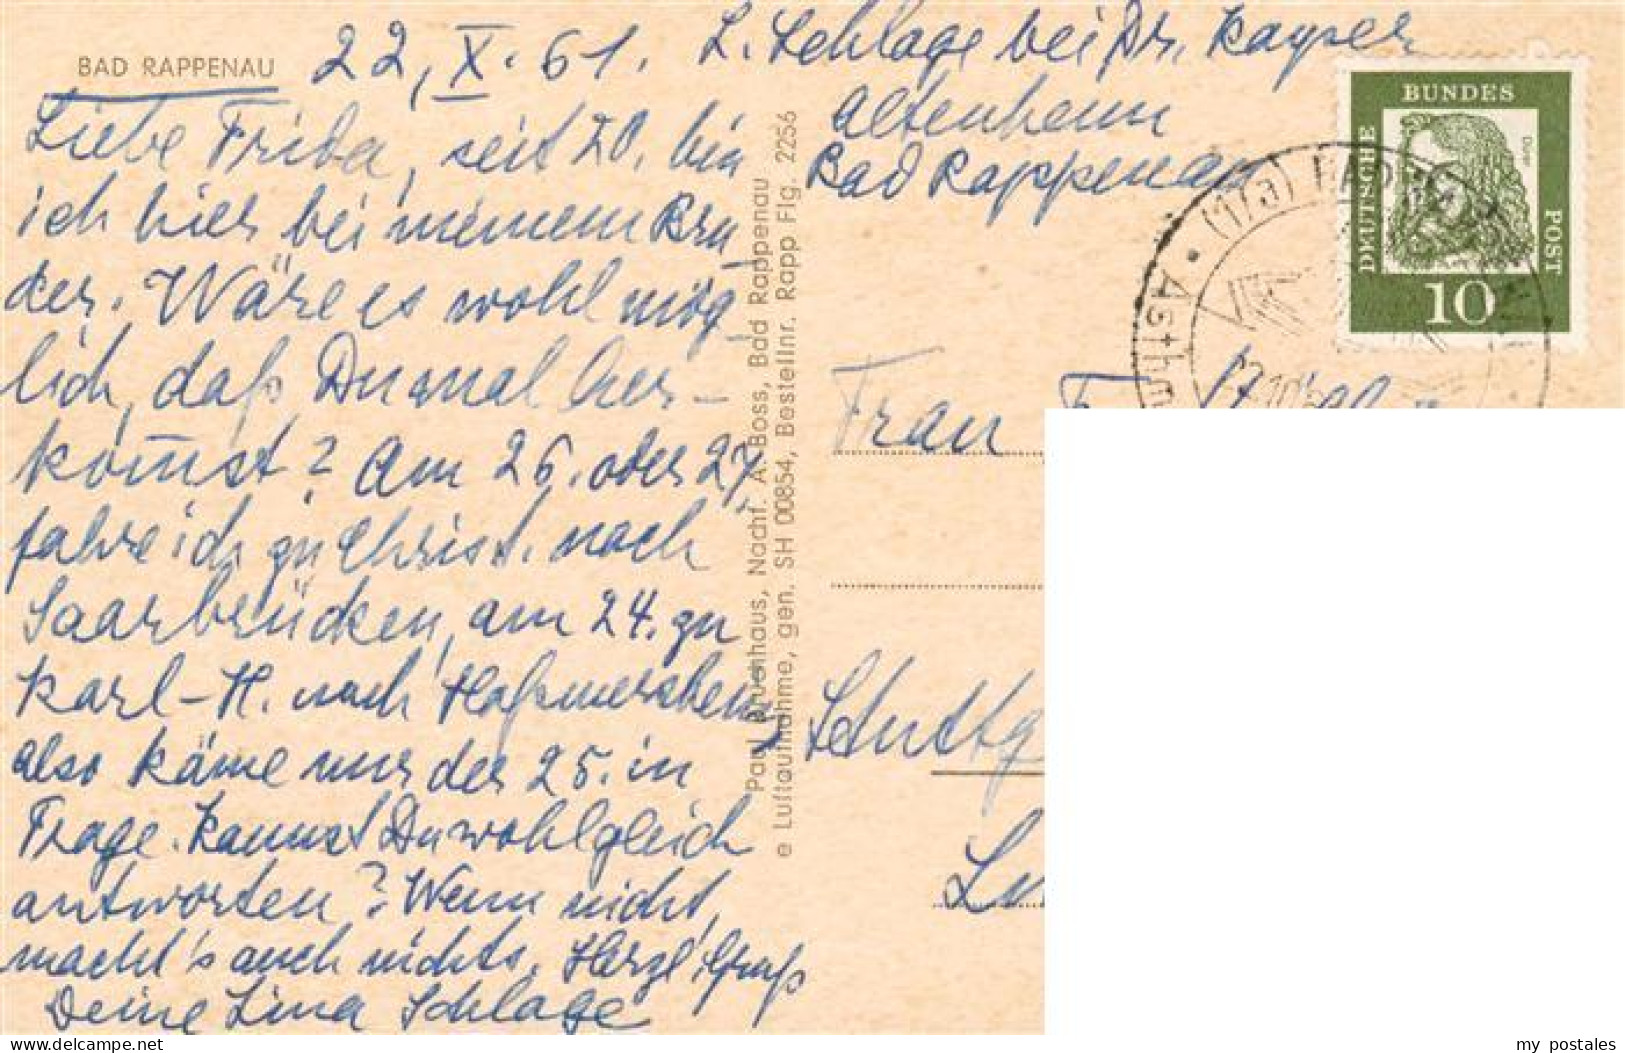 BAD RAPPENAU
22. X. 61.
Liebe Frida, seit 20. bin
ich hier bei meinem Bru
der. Wäre es wohl mög
lich, daß Du mal her-
kom̅st? Am 26. oder 27.
fahre ich zu Christ. nach
Saarbrücken, am 24. zu
Karl-H. nach Haßmersheim,
also käme nur der 25. in
Frage. Kannst Du wohl gleich
antworten? Wenn nicht,
macht's auch nichts. Herzl. Gruß
Deine Lina Schlage
Nachf. A. Boss, Bad Rappenau
e Luftaufnahme, gen. SH 00854, Bestellnr. Rapp Flg. 2256
L. Schlage bei Dr. Kayser
Altenheim
Bad Rappenau
DEUTSCHE
BUNDES
POST
10
(17a) BAD
Asthm
Frau
Stuttg
my postales
www.delcampe.net